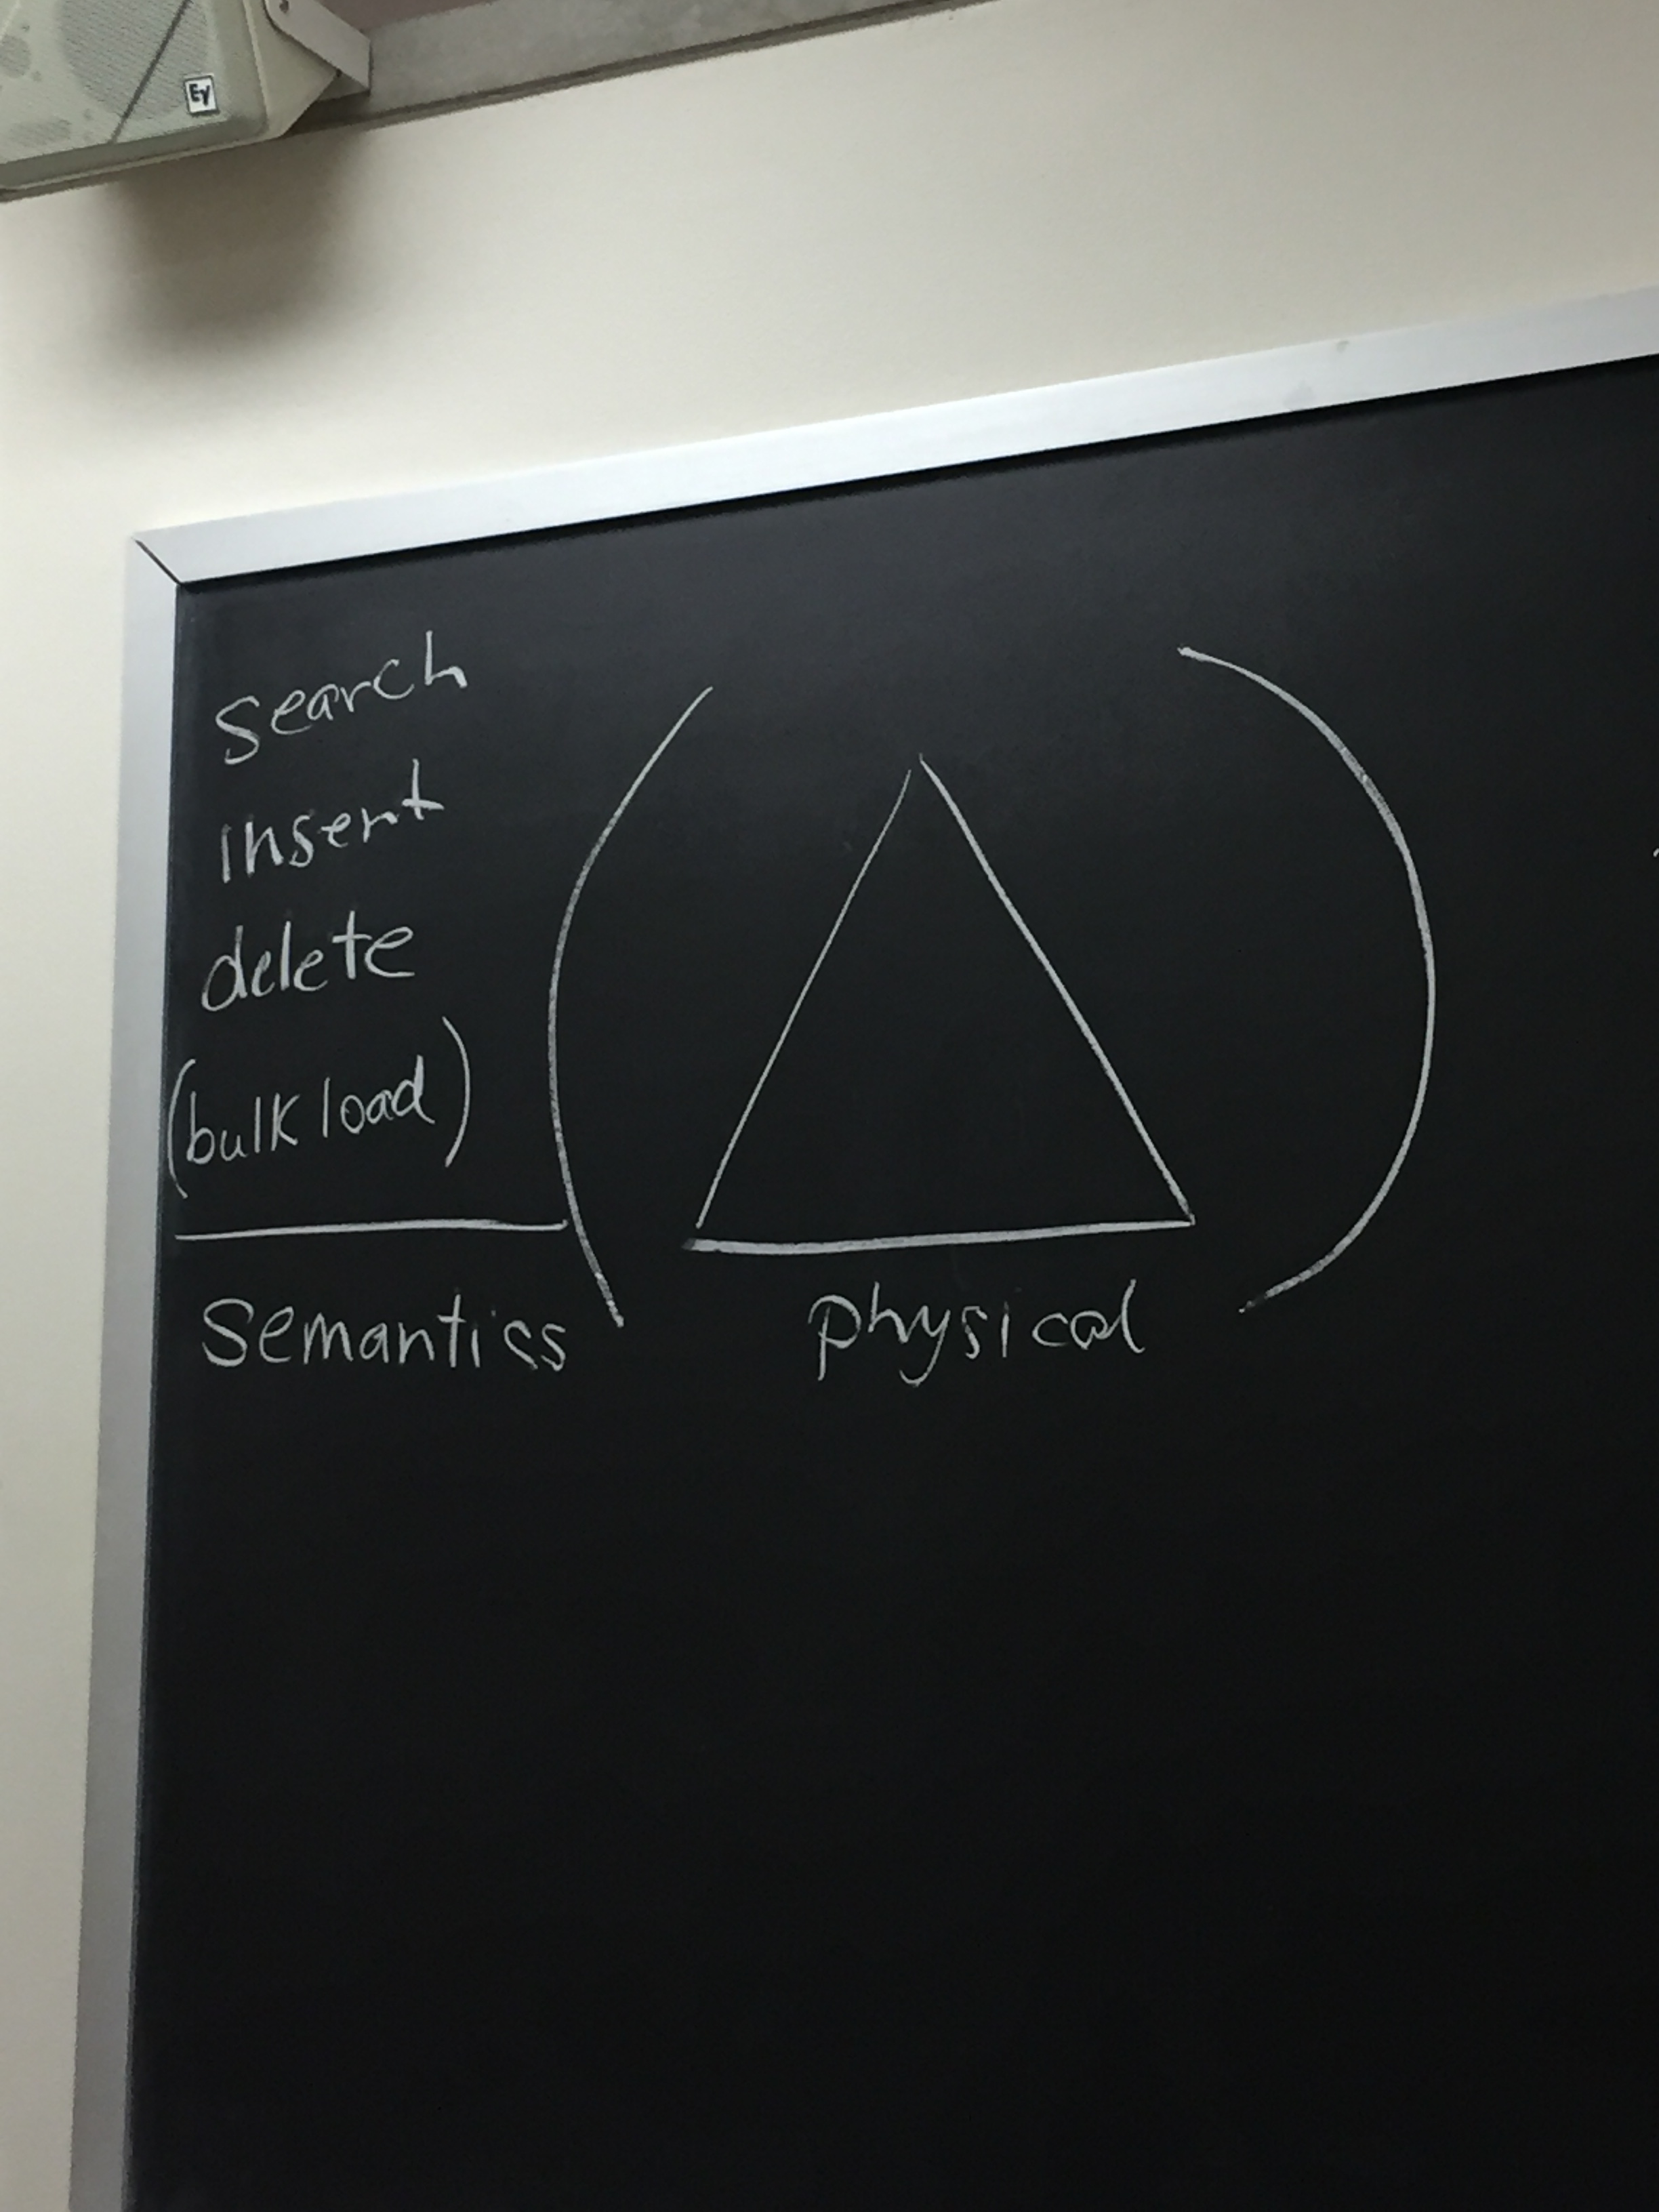 EV
Search
insert
delete
(bulk load)
Semantics
physical